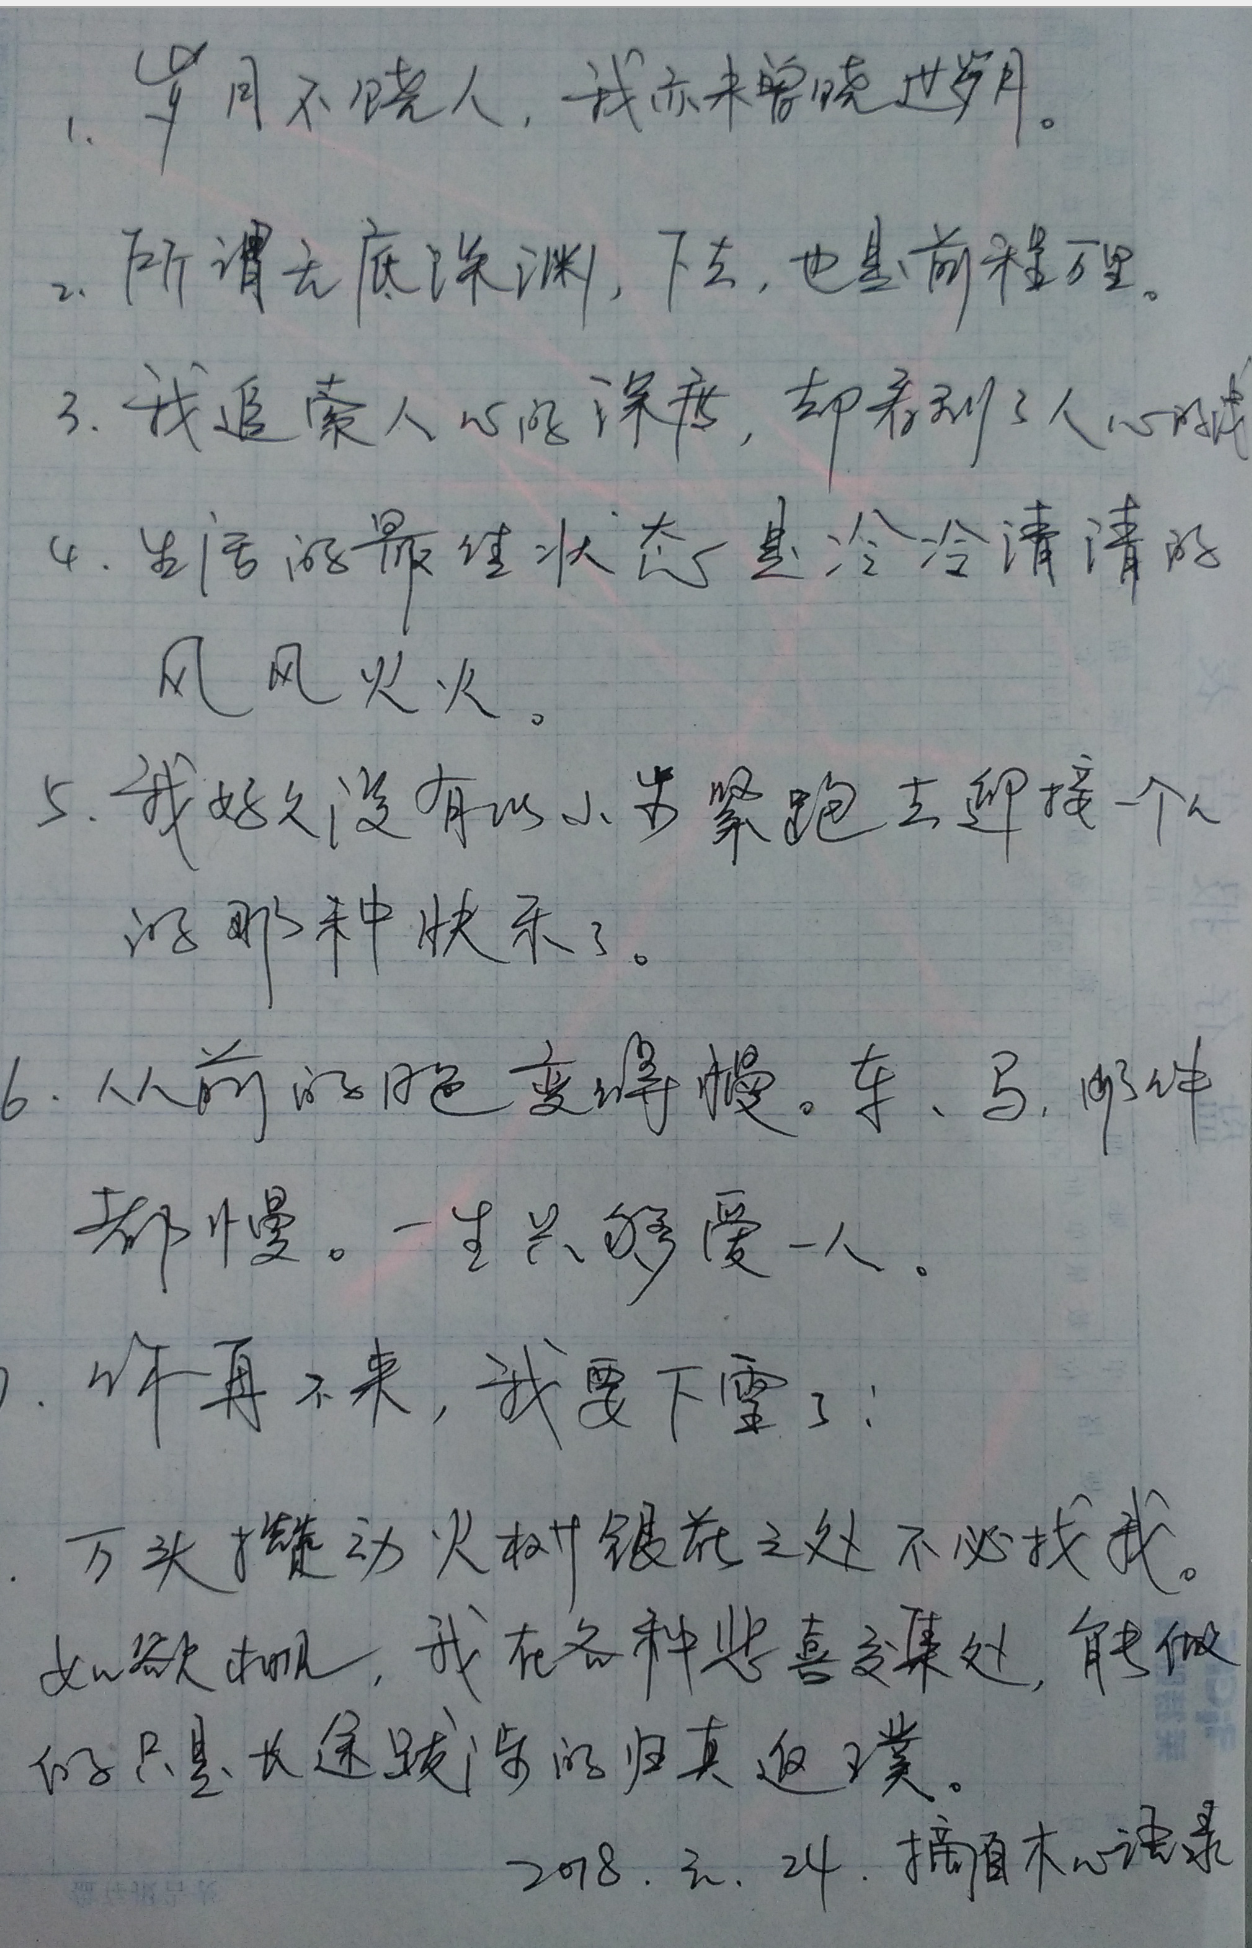 1. 岁月不饶人,我亦未曾饶过岁月。
2. 所谓无底深渊,下去,也是前程万里。
3. 我追索人心的深度,却看到了人心的浅
4. 生活的最佳状态是冷冷清清的
风风火火。
5. 我好久没有以小步紧跑去迎接一个人
的那种快乐了。
6. 从前的日色变得慢。车、马、邮件
都慢。一生只够爱一人。
你再不来,我要下雪了!
万头攒动火树银花之处不必找我。
如欲相见,我在各种悲喜交集处,能做
的只是长途跋涉的归真返璞。
2018. 元. 24. 摘自木心语录